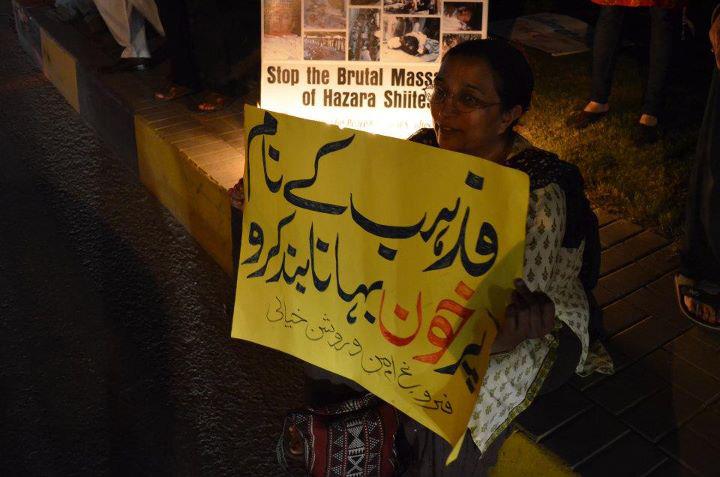 Stop the Brutal Massa
of Hazara Shiites
مذہب کے نام
پر خون بہانا بند کرو
فروغ امن و روشن خیالی